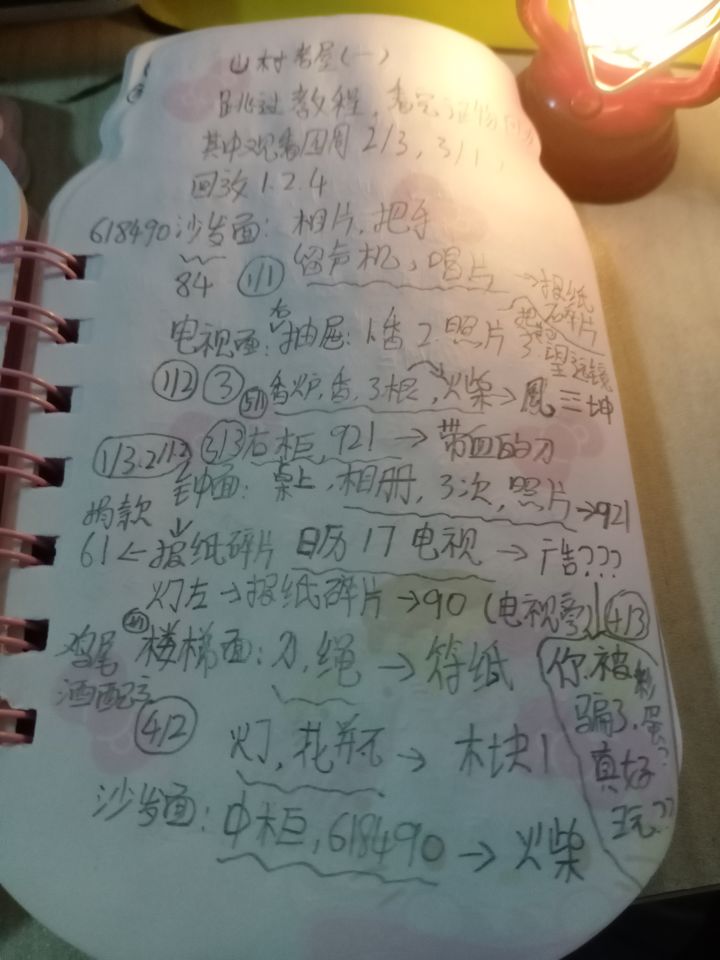 山村老屋(一)
跳过教程,看完
其中观看四周 2/3, 3/1,
回放 1.2.4
618490 沙发面: 相片, 把手
84 1/1 留声机, 唱片 → 报纸碎片
电视面: 右抽屉: 1.香 2.照片
望远镜
1/2 3 5/1 香炉, 香, 3根, 火柴 → 凰 三坤
1/3.2/1.2 3/3 右柜, 921 → 带血的刀
钟面: 桌上, 相册, 3次, 照片 → 921
捐款
61 ← 报纸碎片 日历 17 电视 → 广告???
灯左 → 报纸碎片 → 90 (电视旁) 4/3
鸡尾酒配方 4/1 楼梯面: 刀, 绳 → 符纸
4/2 灯, 花瓶 → 木块1
你被骗了, 彩蛋?? 真好玩??
沙发面: 中柜, 618490 → 火柴